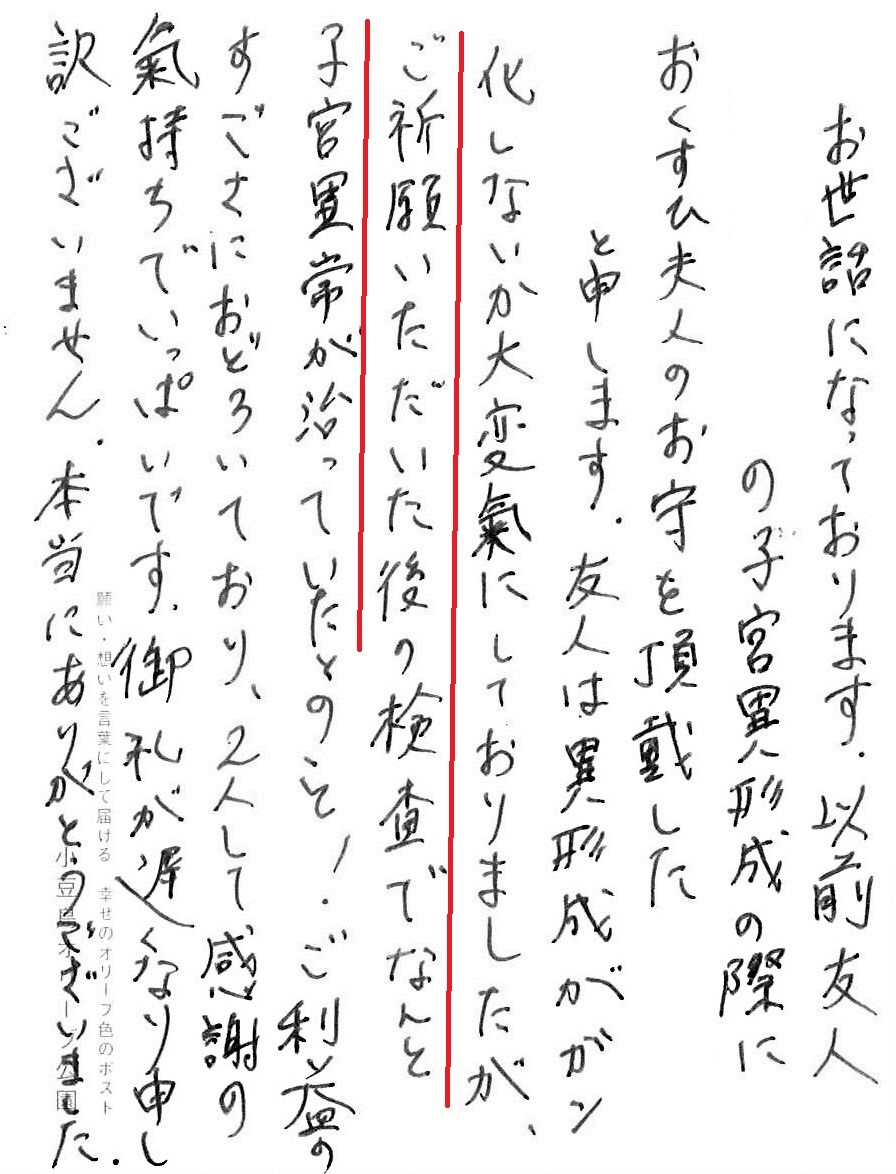 お世話になっております．以前友人
の子宮異形成の際に
おくすひ夫人のお守を頂戴した
と申します．友人は異形成がガン
化しないか大変氣にしておりましたが、
ご祈願いただいた後の検査でなんと
子宮異常が治っていたとのこと！．ご利益の
すごさにおどろいており、2人して感謝の
氣持ちでいっぱいです、御礼が遅くなり申し
訳ございません．本当にありがとうございました．
願い・想いを言葉にして届ける 幸せのオリーブ色のポスト
小豆島オリーブ公園